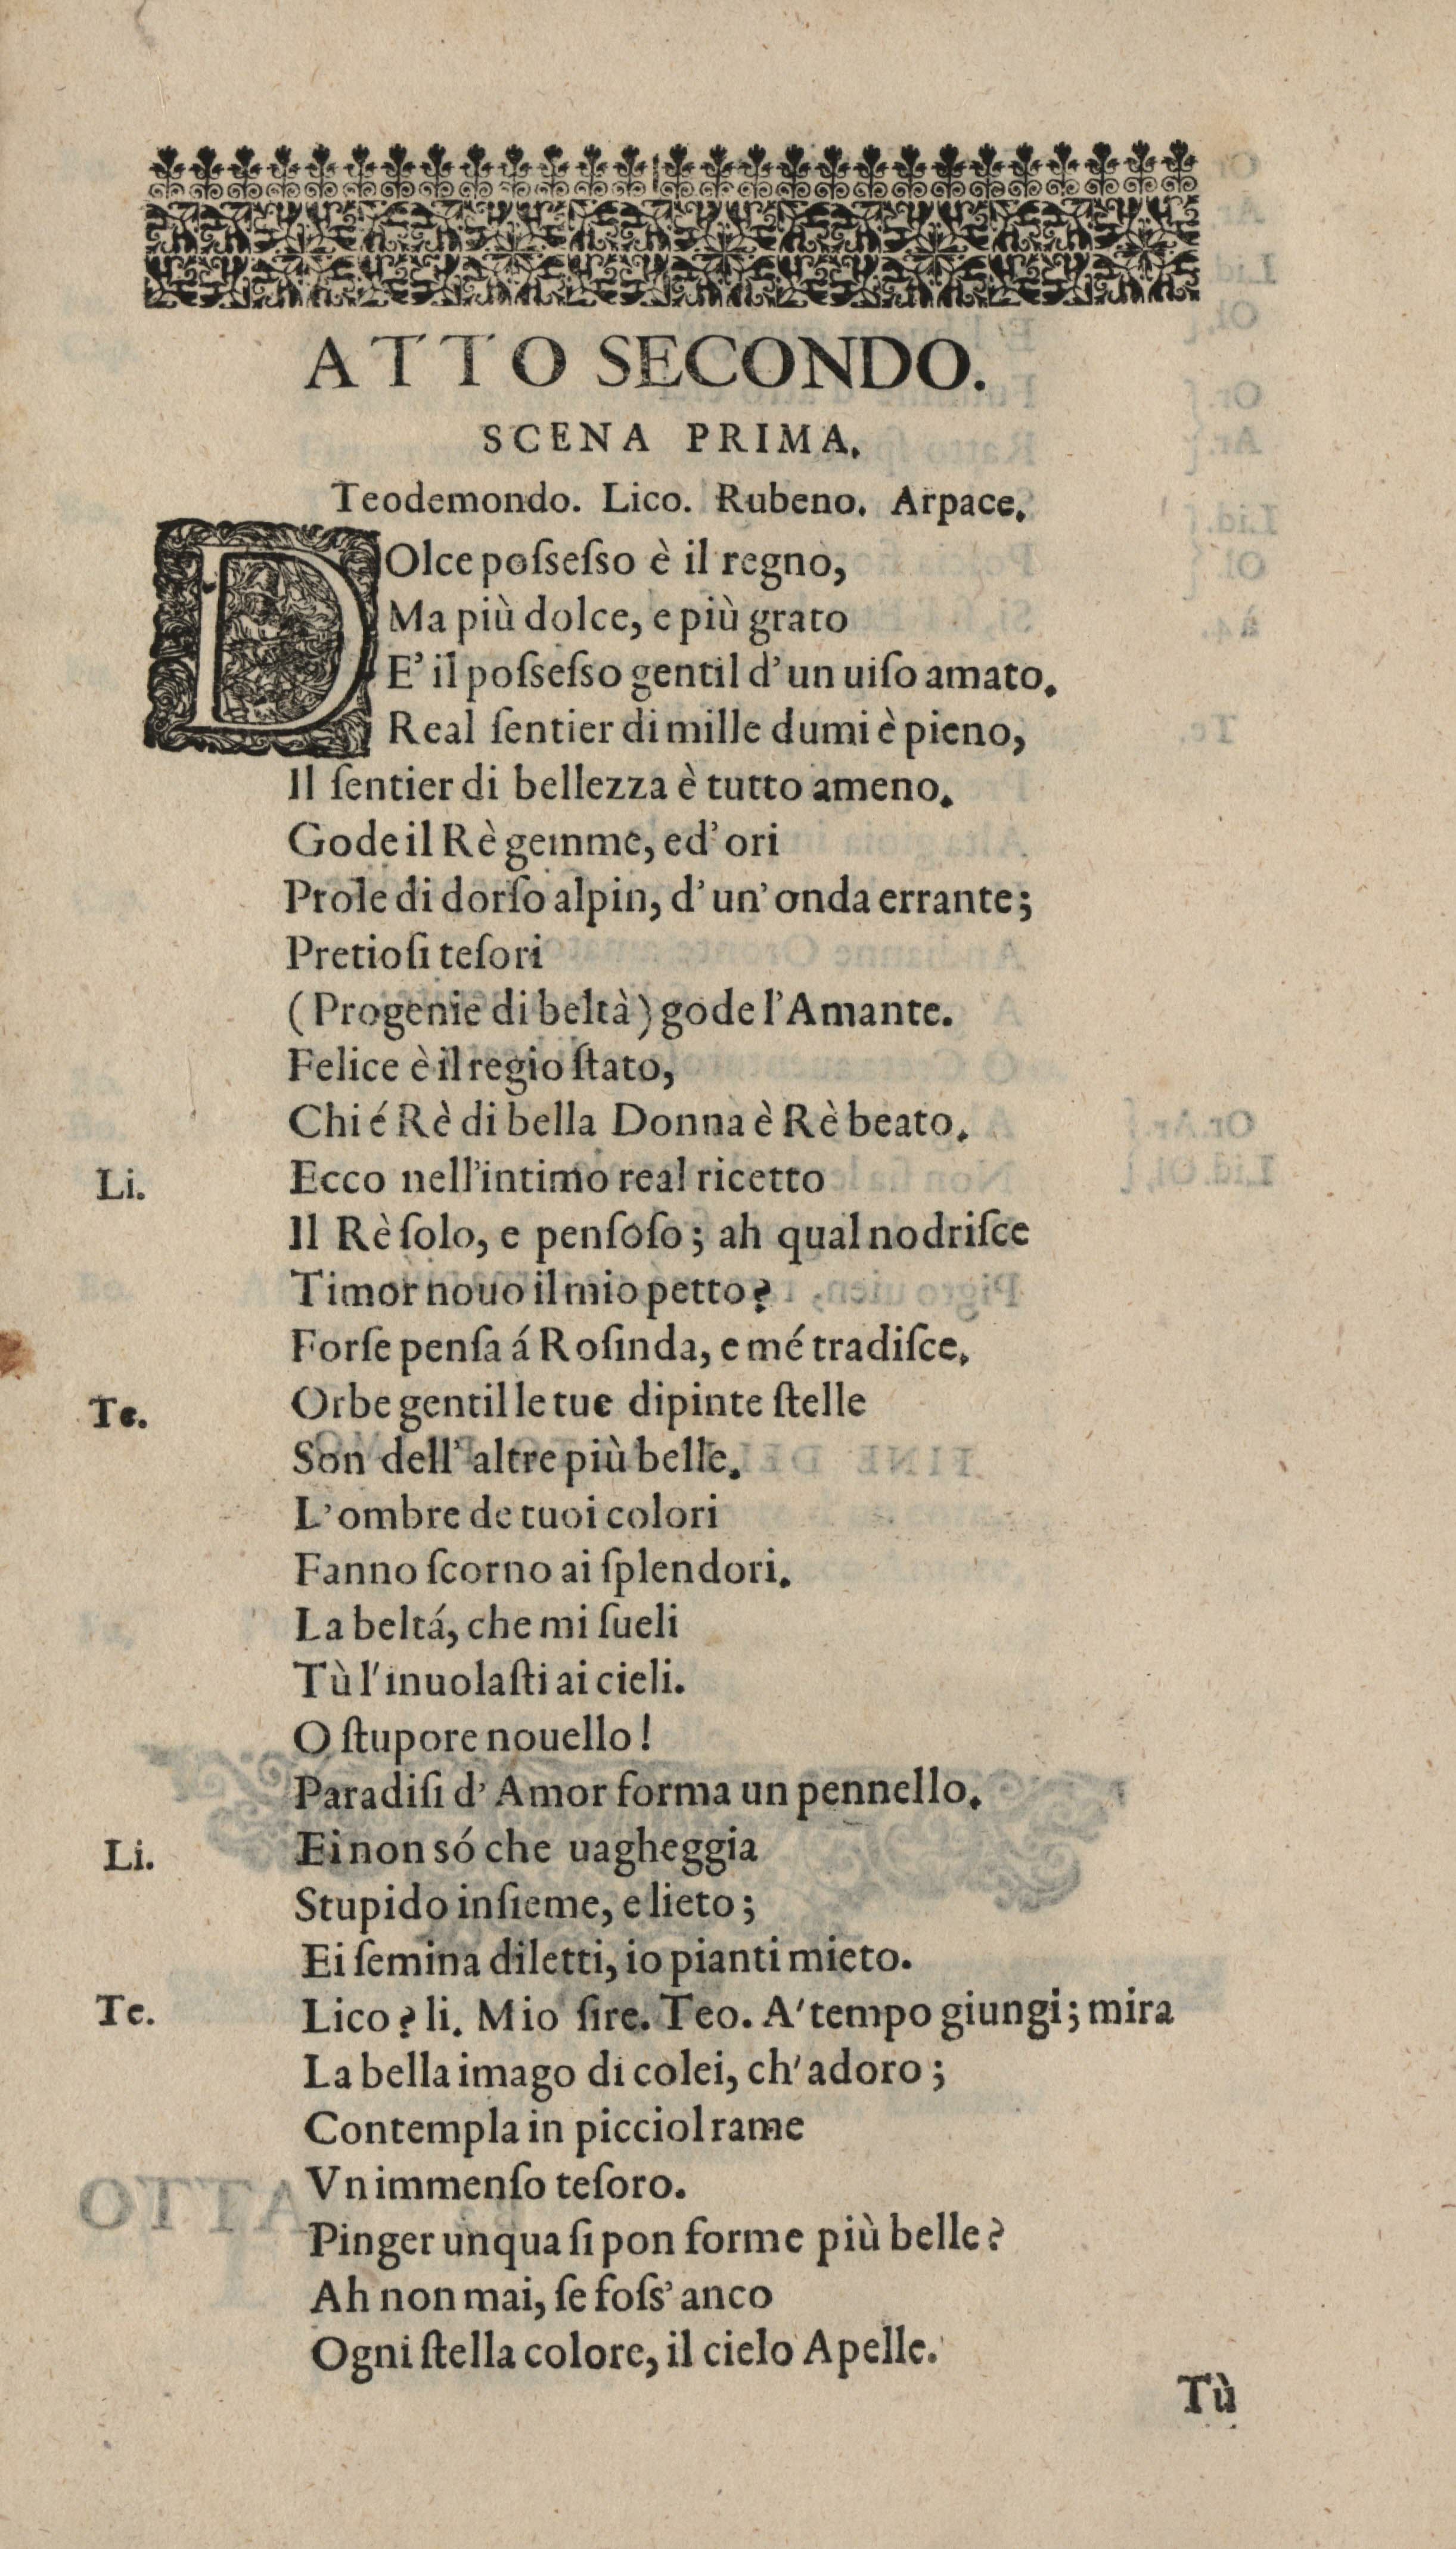 ATTO SECONDO.
SCENA PRIMA.
Teodemondo. Lico. Rubeno. Arpace.
DOlce poſseſso è il regno,
Ma più dolce, e più grato
E' il poſseſso gentil d'un uiſo amato.
Real ſentier di mille dumi è pieno,
Il ſentier di bellezza è tutto ameno.
Gode il Rè gemme, ed'ori
Prole di dorſo alpin, d'un'onda errante;
Pretioſi teſori
(Progenie di beltà) gode l'Amante.
Felice è il regio ſtato,
Chi é Rè di bella Donna è Rè beato.
Li. Ecco nell'intimo real ricetto
Il Rè ſolo, e penſoſo; ah qual nodriſce
Timor nouo il mio petto?
Forſe penſa á Roſinda, e mé tradiſce.
Te. Orbe gentil le tue dipinte ſtelle
Son dell'altre più belle.
L'ombre de tuoi colori
Fanno ſcorno ai ſplendori.
La beltá, che mi ſueli
Tù l'inuolaſti ai cieli.
O ſtupore nouello!
Paradiſi d'Amor forma un pennello.
Li. Ei non só che uagheggia
Stupido inſieme, e lieto;
Ei ſemina diletti, io pianti mieto.
Te. Lico? li. Mio ſire. Teo. A'tempo giungi; mira
La bella imago di colei, ch'adoro;
Contempla in picciol rame
Vn immenſo teſoro.
Pinger unqua ſi pon forme più belle?
Ah non mai, ſe foſs'anco
Ogni ſtella colore, il cielo Apelle.
Tù